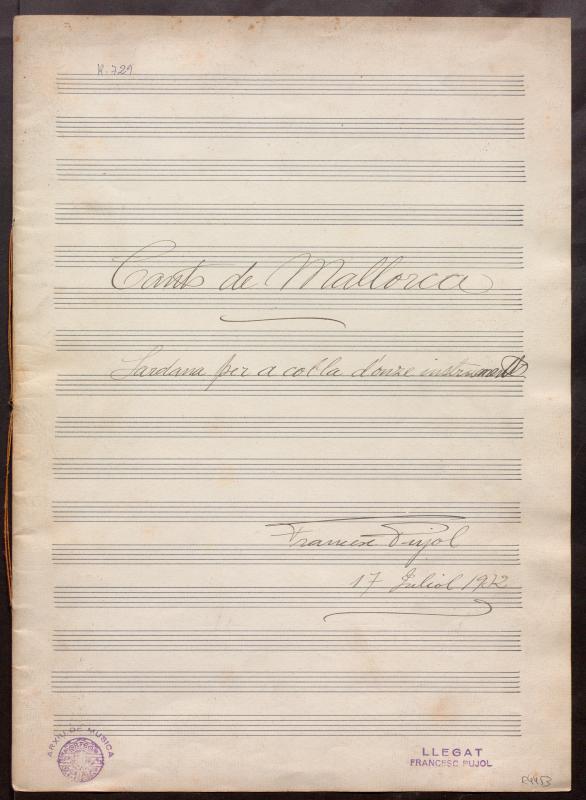 K. 729
Cants de Mallorca
Sardana per a cobla d'onze instruments
Francesc Pujol
17 Juliol 1922
ARXIU DE MÚSICA
LLEGAT
FRANCESC PUJOL